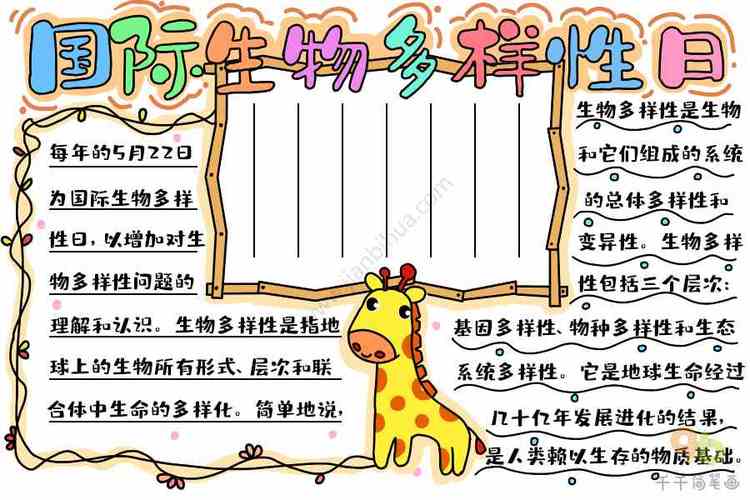 国际生物多样性日
每年的5月22日
为国际生物多样
性日，以增加对生
物多样性问题的
理解和认识。生物多样性是指地
球上的生物所有形式、层次和联
合体中生命的多样化。简单地说，
生物多样性是生物
和它们组成的系统
的总体多样性和
变异性。生物多样
性包括三个层次：
基因多样性、物种多样性和生态
系统多样性。它是地球生命经过
几十亿年发展进化的结果，
是人类赖以生存的物质基础。
千千简笔画